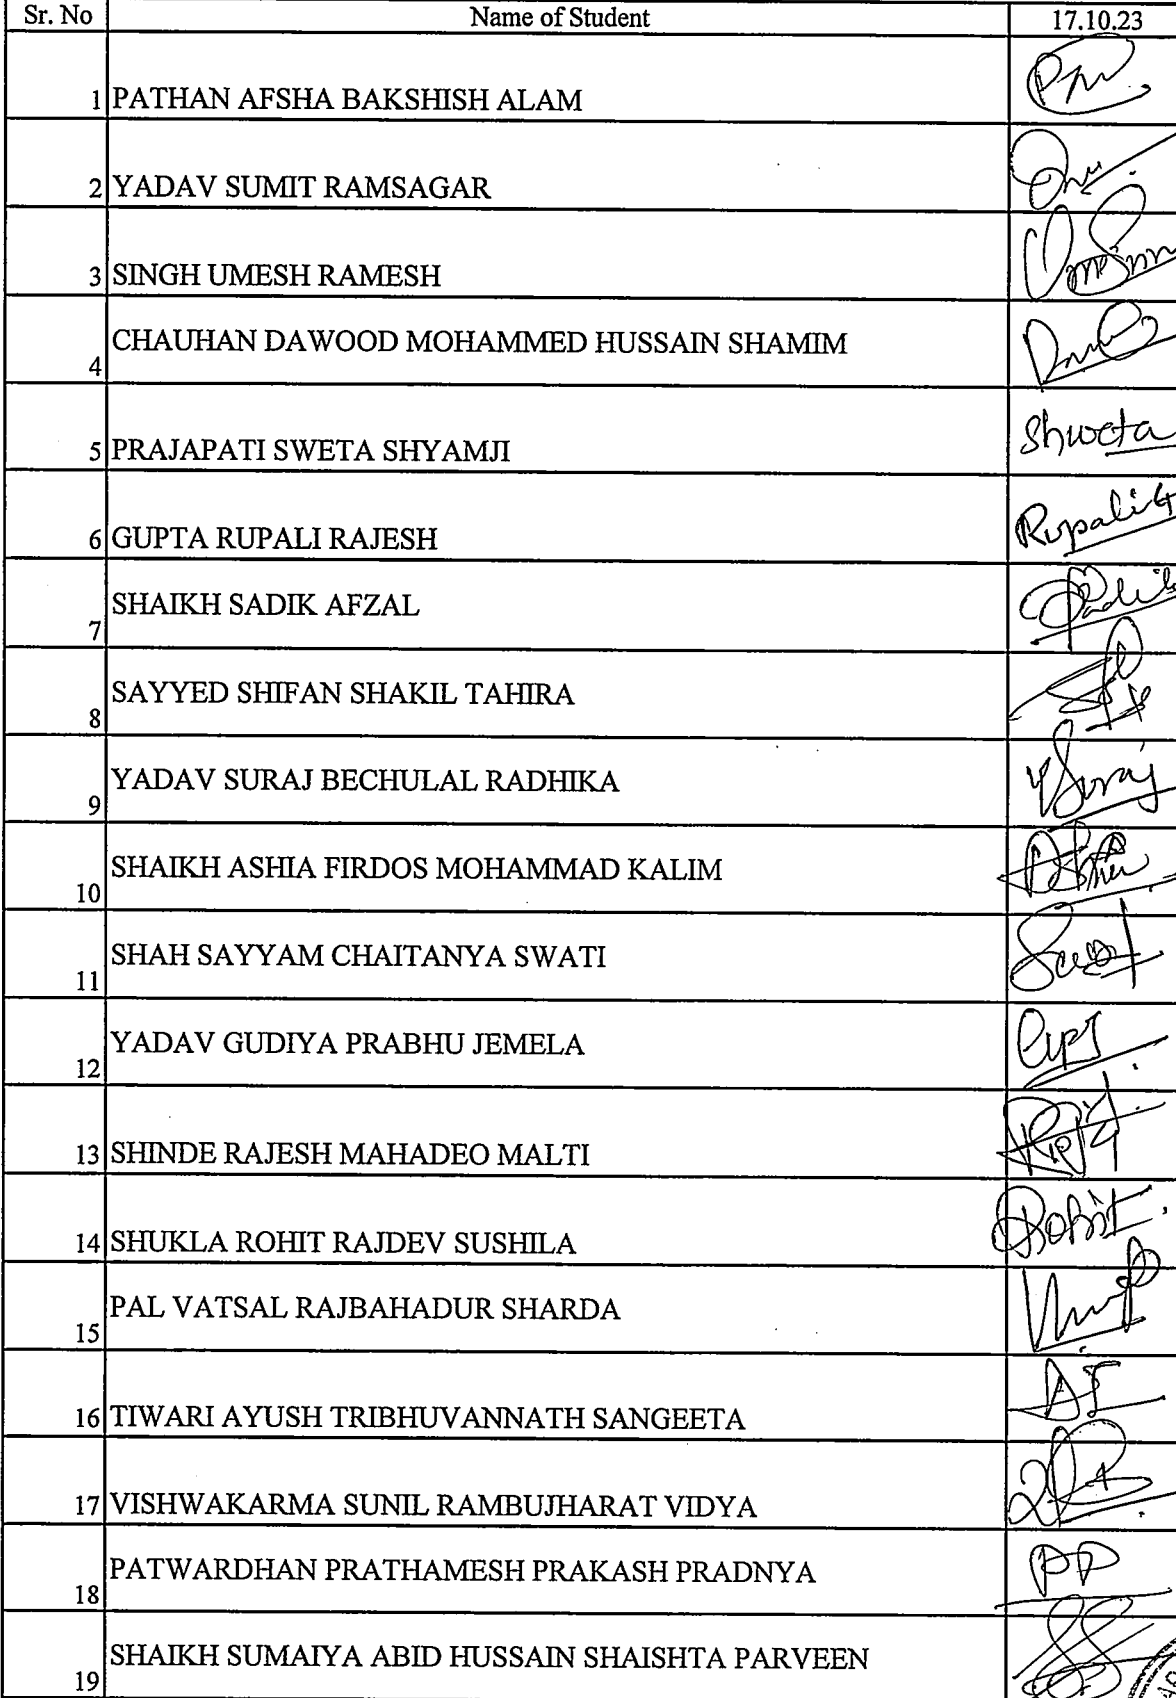 Sr. No Name of Student 17.10.23
1 PATHAN AFSHA BAKSHISH ALAM
2 YADAV SUMIT RAMSAGAR
3 SINGH UMESH RAMESH
4 CHAUHAN DAWOOD MOHAMMED HUSSAIN SHAMIM
5 PRAJAPATI SWETA SHYAMJI Shweta
6 GUPTA RUPALI RAJESH Rupali G
7 SHAIKH SADIK AFZAL
8 SAYYED SHIFAN SHAKIL TAHIRA
9 YADAV SURAJ BECHULAL RADHIKA Y Suraj
10 SHAIKH ASHIA FIRDOS MOHAMMAD KALIM
11 SHAH SAYYAM CHAITANYA SWATI
12 YADAV GUDIYA PRABHU JEMELA
13 SHINDE RAJESH MAHADEO MALTI
14 SHUKLA ROHIT RAJDEV SUSHILA Rohit
15 PAL VATSAL RAJBAHADUR SHARDA
16 TIWARI AYUSH TRIBHUVANNATH SANGEETA
17 VISHWAKARMA SUNIL RAMBUJHARAT VIDYA
18 PATWARDHAN PRATHAMESH PRAKASH PRADNYA PP
19 SHAIKH SUMAIYA ABID HUSSAIN SHAISHTA PARVEEN